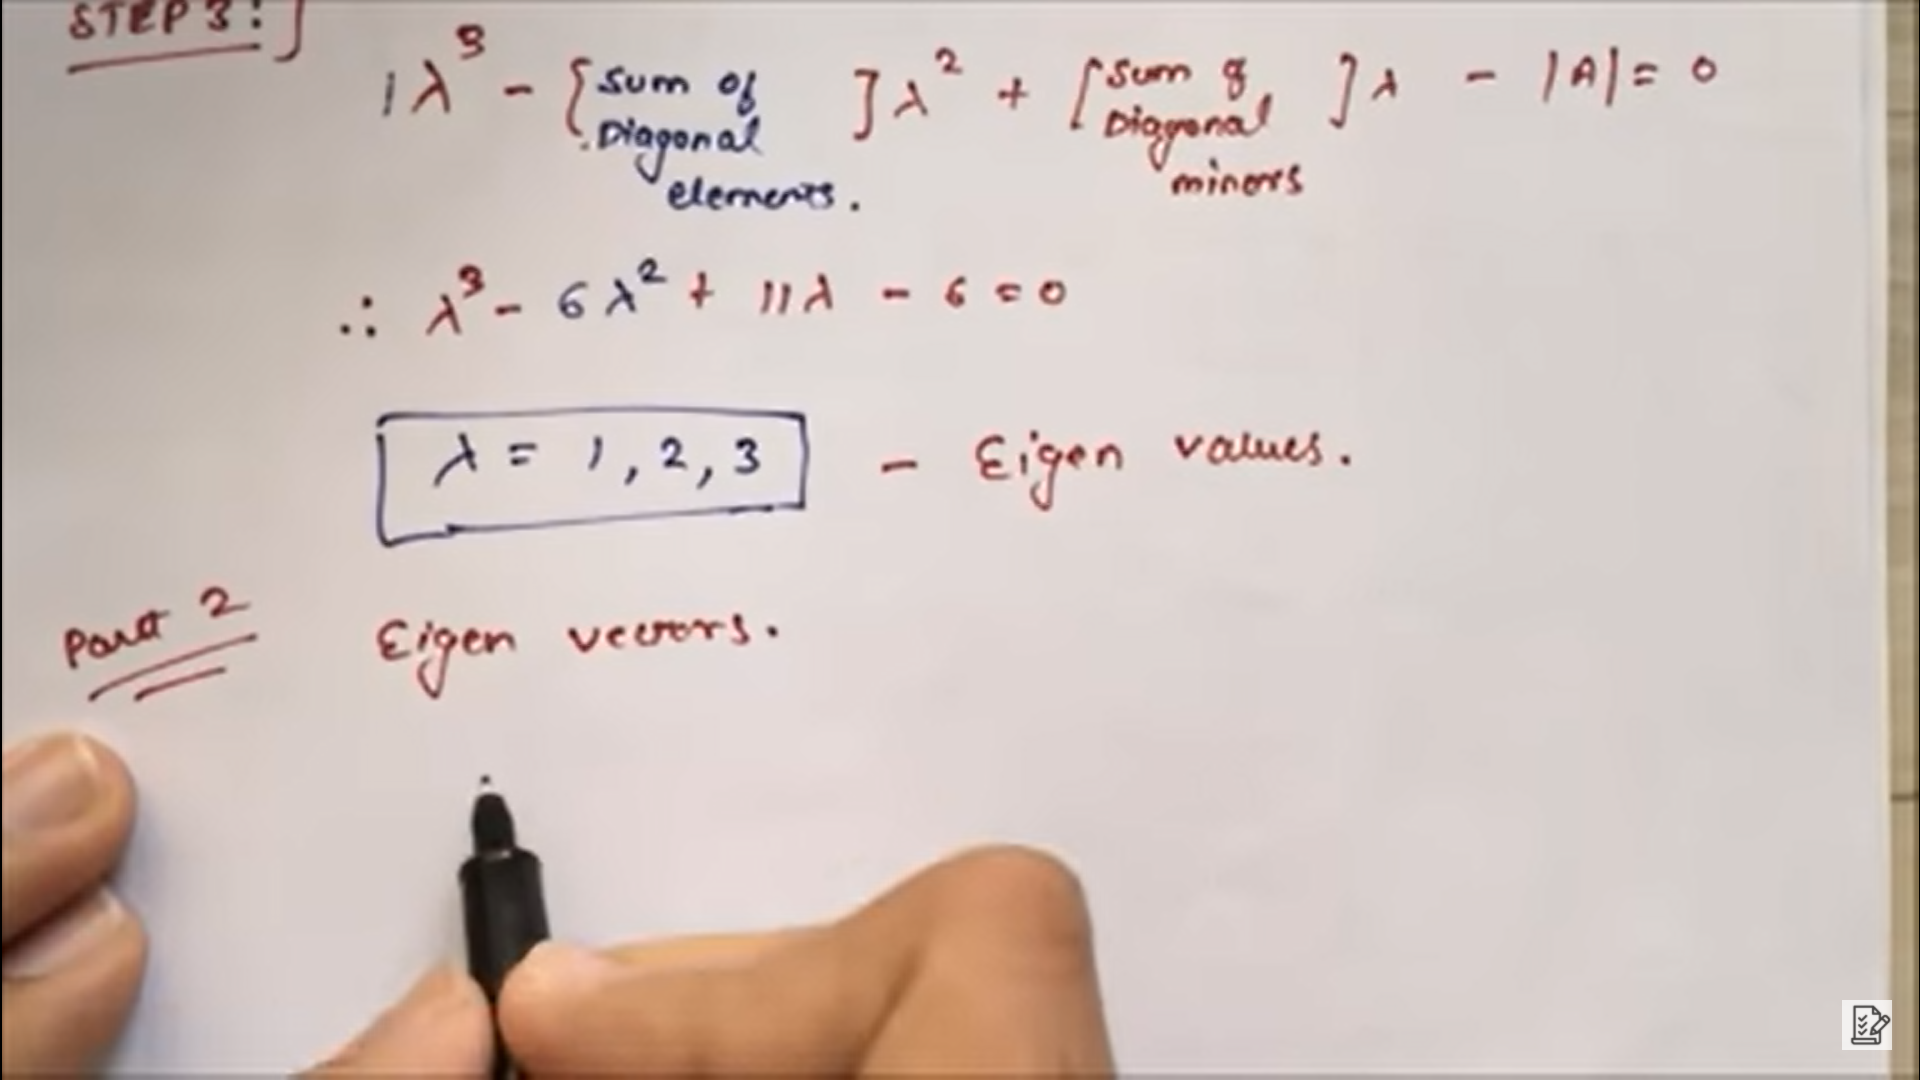 STEP 3:
1λ³ - [Sum of Diagonal elements.]λ² + [Sum of Diagonal minors]λ - |A| = 0
∴ λ³ - 6λ² + 11λ - 6 = 0
λ = 1, 2, 3 - Eigen values.
Part 2 Eigen vectors.